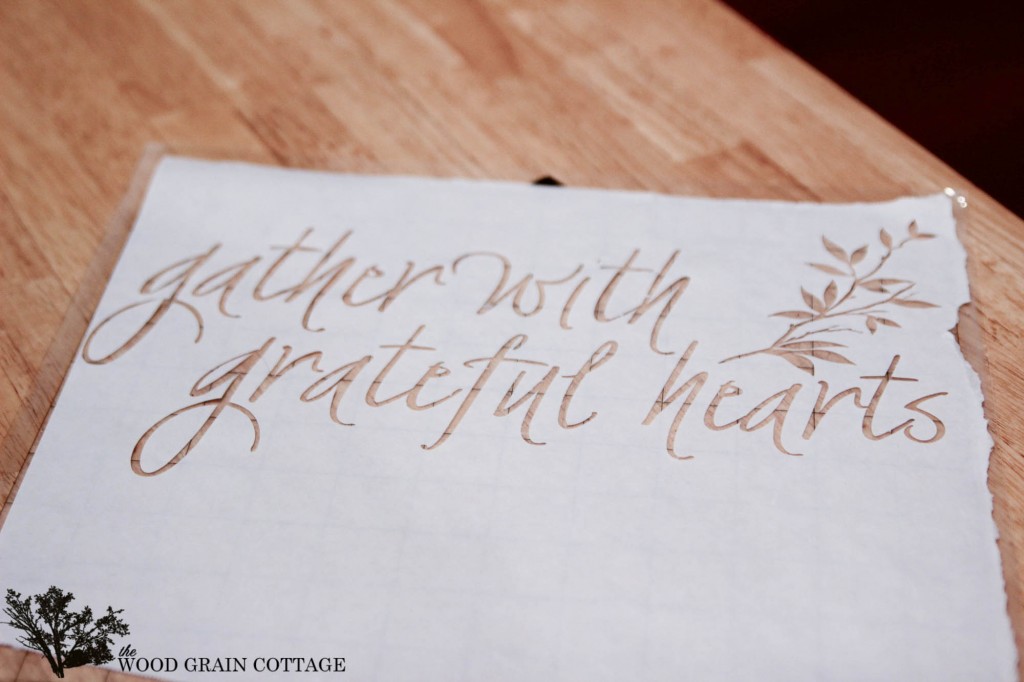 gather with
grateful hearts
the
WOOD GRAIN COTTAGE